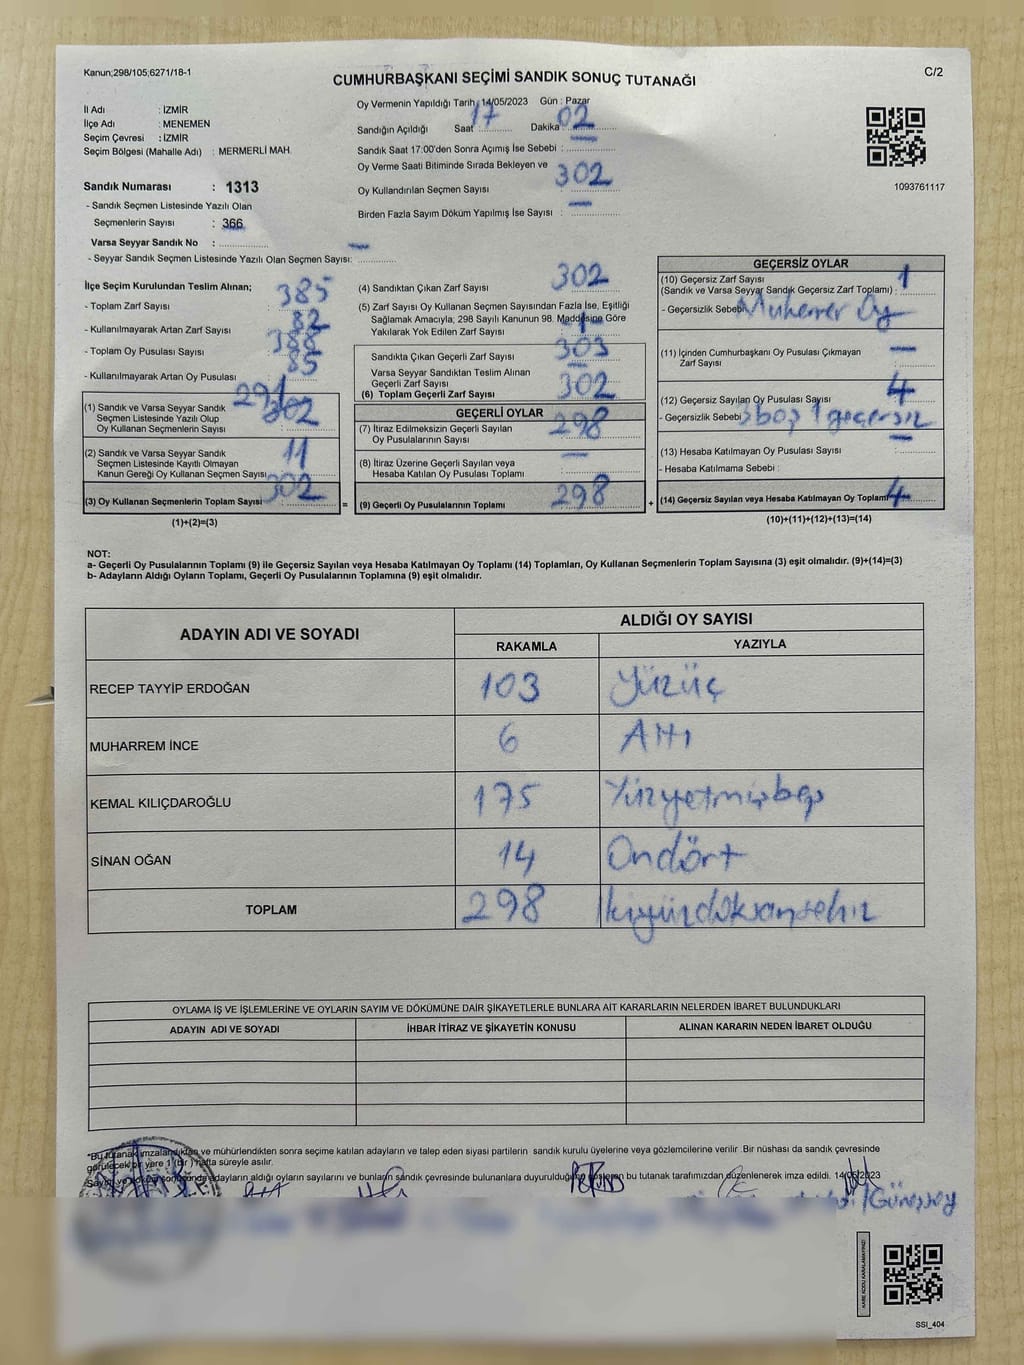 Kanun;298/105;6271/18-1
CUMHURBAŞKANI SEÇİMİ SANDIK SONUÇ TUTANAĞI
C/2
İl Adı : İZMİR
İlçe Adı : MENEMEN
Seçim Çevresi : İZMİR
Seçim Bölgesi (Mahalle Adı) : MERMERLİ MAH.
Sandık Numarası : 1313
- Sandık Seçmen Listesinde Yazılı Olan
Seçmenlerin Sayısı : 366
Varsa Seyyar Sandık No :
- Seyyar Sandık Seçmen Listesinde Yazılı Olan Seçmen Sayısı: —
Oy Vermenin Yapıldığı Tarih : 14/05/2023 Gün : Pazar
Sandığın Açıldığı Saat 17 Dakika 02
Sandık Saat 17:00'den Sonra Açımış İse Sebebi : —
Oy Verme Saati Bitiminde Sırada Bekleyen ve
Oy Kullandırılan Seçmen Sayısı 302
Birden Fazla Sayım Döküm Yapılmış İse Sayısı : —
1093761117
İlçe Seçim Kurulundan Teslim Alınan;
- Toplam Zarf Sayısı : 385
- Kullanılmayarak Artan Zarf Sayısı : 82
- Toplam Oy Pusulası Sayısı : 388
- Kullanılmayarak Artan Oy Pusulası : 85
(1) Sandık ve Varsa Seyyar Sandık 291
Seçmen Listesinde Yazılı Olup 302
Oy Kullanan Seçmenlerin Sayısı :
(2) Sandık ve Varsa Seyyar Sandık
Seçmen Listesinde Kayıtlı Olmayan 11
Kanun Gereği Oy Kullanan Seçmen Sayısı
(3) Oy Kullanan Seçmenlerin Toplam Sayısı : 302 =
(1)+(2)=(3)
(4) Sandıktan Çıkan Zarf Sayısı 302
(5) Zarf Sayısı Oy Kullanan Seçmen Sayısından Fazla İse, Eşitliği
Sağlamak Amacıyla, 298 Sayılı Kanunun 98. Maddesine Göre
Yakılarak Yok Edilen Zarf Sayısı -1-
Sandıkta Çıkan Geçerli Zarf Sayısı 303
Varsa Seyyar Sandıktan Teslim Alınan
Geçerli Zarf Sayısı
(6) Toplam Geçerli Zarf Sayısı 302
GEÇERLİ OYLAR
(7) İtiraz Edilmeksizin Geçerli Sayılan
Oy Pusulalarının Sayısı 298
(8) İtiraz Üzerine Geçerli Sayılan veya
Hesaba Katılan Oy Pusulası Toplamı —
(9) Geçerli Oy Pusulalarının Toplamı 298 +
GEÇERSİZ OYLAR
(10) Geçersiz Zarf Sayısı
(Sandık ve Varsa Seyyar Sandık Geçersiz Zarf Toplamı) : 1
- Geçersizlik Sebebi Mükerrer Oy
(11) İçinden Cumhurbaşkanı Oy Pusulası Çıkmayan
Zarf Sayısı —
(12) Geçersiz Sayılan Oy Pusulası Sayısı 4
- Geçersizlik Sebebi 3boş 1 geçersiz
(13) Hesaba Katılmayan Oy Pusulası Sayısı —
- Hesaba Katılmama Sebebi :
(14) Geçersiz Sayılan veya Hesaba Katılmayan Oy Toplamı 4
(10)+(11)+(12)+(13)=(14)
NOT:
a- Geçerli Oy Pusulalarının Toplamı (9) ile Geçersiz Sayılan veya Hesaba Katılmayan Oy Toplamı (14) Toplamları, Oy Kullanan Seçmenlerin Toplam Sayısına (3) eşit olmalıdır. (9)+(14)=(3)
b- Adayların Aldığı Oyların Toplamı, Geçerli Oy Pusulalarının Toplamına (9) eşit olmalıdır.
ADAYIN ADI VE SOYADI ALDIĞI OY SAYISI
RAKAMLA YAZIYLA
RECEP TAYYİP ERDOĞAN 103 Yüzüç
MUHARREM İNCE 6 Altı
KEMAL KILIÇDAROĞLU 175 Yüzyetmişbeş
SİNAN OĞAN 14 Ondört
TOPLAM 298 İkiyüzdoksansekiz
OYLAMA İŞ VE İŞLEMLERİNE VE OYLARIN SAYIM VE DÖKÜMÜNE DAİR ŞİKAYETLERLE BUNLARA AİT KARARLARIN NELERDEN İBARET BULUNDUKLARI
ADAYIN ADI VE SOYADI İHBAR İTİRAZ VE ŞİKAYETİN KONUSU ALINAN KARARIN NEDEN İBARET OLDUĞU
"Bu tutanak imzalandıktan ve mühürlendikten sonra seçime katılan adayların ve talep eden siyasi partilerin sandık kurulu üyelerine veya gözlemcilerine verilir. Bir nüshası da sandık çevresinde
görülecek bir yere 1 (bir) hafta süreyle asılır.
adayların aldığı oyların sayılarını ve bunların sandık çevresinde bulunanlara duyurulduğunu gösteren bu tutanak tarafımızdan düzenlenerek imza edildi. 14/05/2023
Günessoy
KARE KODU KARALAMAYINIZ!
SSI_404